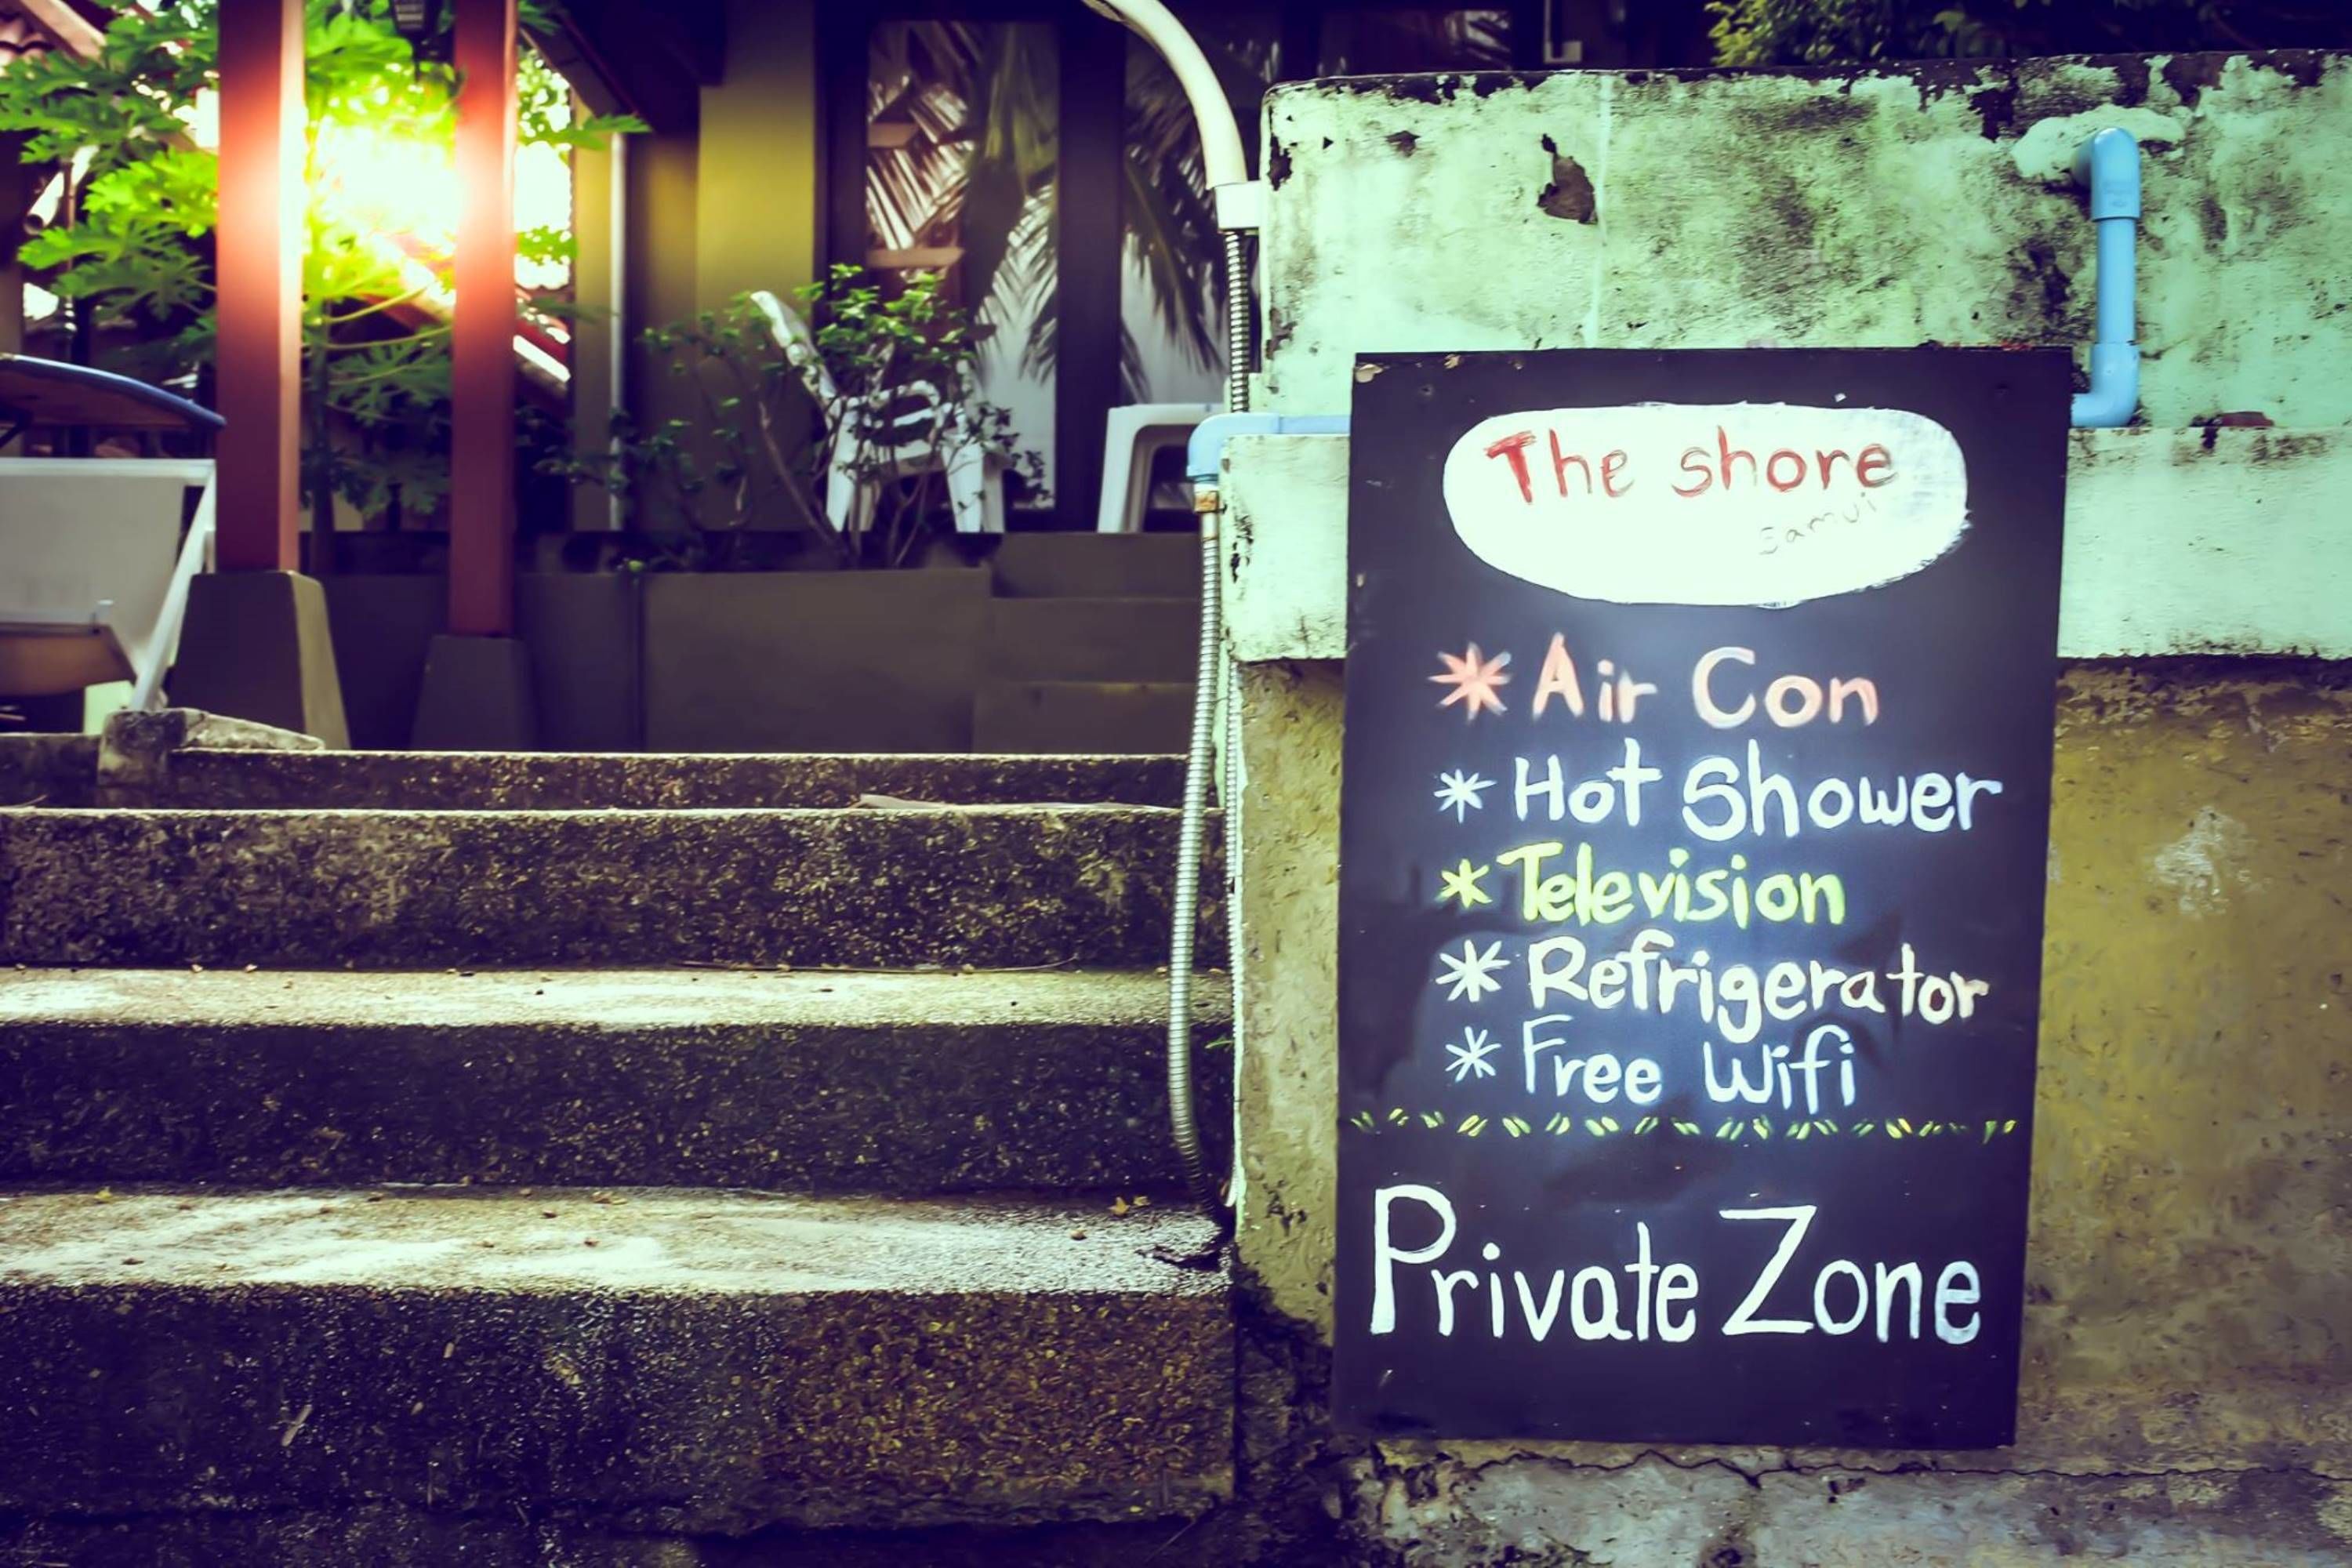 The shore
samui
* Air Con
* Hot Shower
* Television
* Refrigerator
* Free Wifi
Private Zone